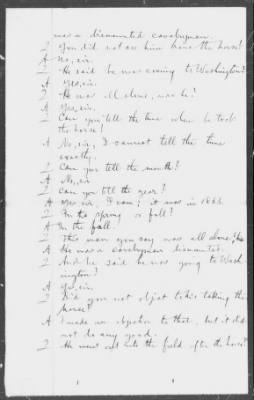 was a dismounted cavalryman.
Q You did not see him leave the horse?
A No, sir.
Q He said he was coming to Washington?
A Yes, sir.
Q He was all alone, was he?
A Yes, sir.
Q Can you tell the time when he took
the horse?
A No, sir, I cannot tell the time
exactly.
Q Can you tell the month?
A No, sir.
Q Can you tell the year?
A Yes sir, I can; it was in 1863.
Q In the spring or fall?
A In the fall.
Q This man you say was all alone?
A He was a cavalryman dismounted.
Q And he said he was going to Wash
ington?
A Yes, sir.
Q Did you not object to his taking the
horse?
A I made an objection to that, but it did
not do any good.
Q He went out into the field after the horse?